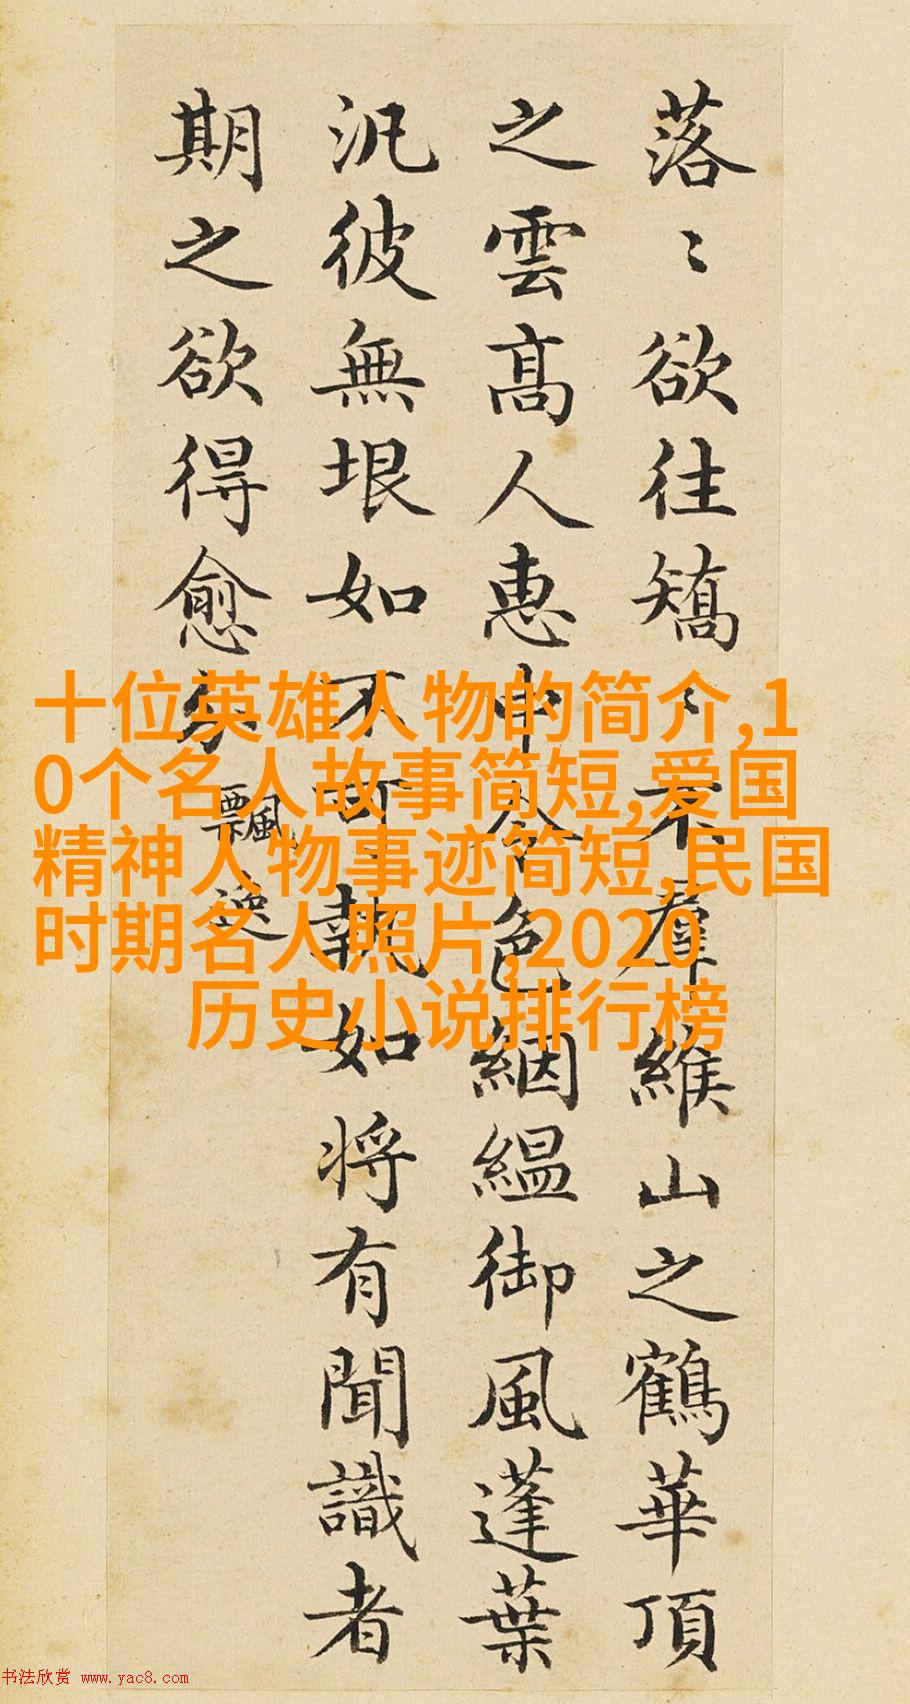 落〻欲往矯〻不羣緱山之鶴華頂
之雲髙人惠中令色絪縕御風蓬葉
汎彼無垠如不可執如将有聞識者
期之欲得愈分
飄逸
十位英雄人物的简介,1
0个名人故事简短,爱国
精神人物事迹简短,民国
时期名人照片,2020
历史小说排行榜
书法欣赏 www.yac8.com